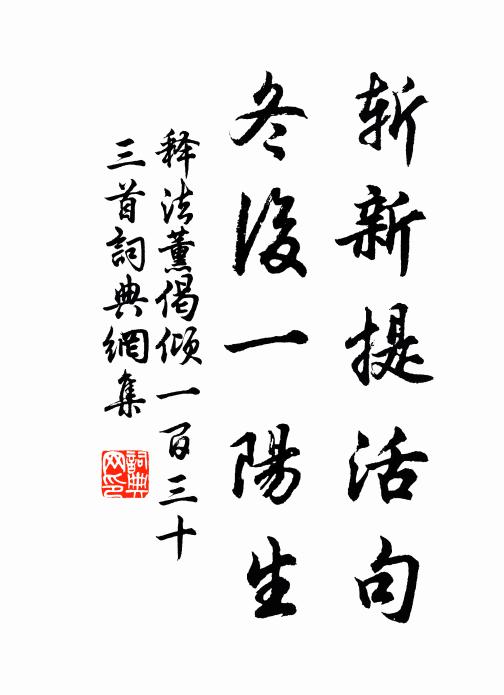 斩新提活句
冬後一陽生
释法薰偈倾一百三十
三首詞典網集
詞典网印